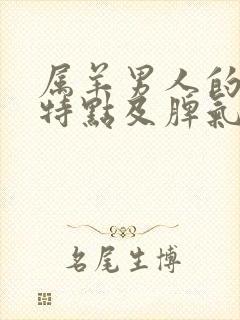 属羊男人的
特點及脾氣
名尾生博